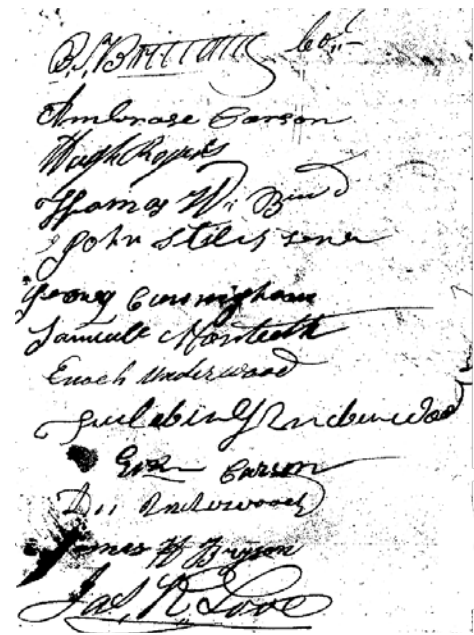 B. S. Brittain Col
Ambrose Carson
Hugh Rogers
Thomas W. Bird
John Stiles sener
Georg Cuningham
Samuell Monteeth
Enoch Underwood
Underwood
Carson
Underwood
James H Bryson
Jas. R Love